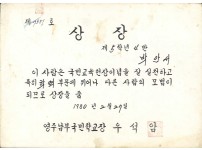 상장
제5학년 4반
이 사람은 국민교육헌장이념을 잘 실천하고
부문에 뛰어나 다른 사람의 모범이
되므로 상장을 줌
1980년 2월 29일
영주남부국민학교장 우석